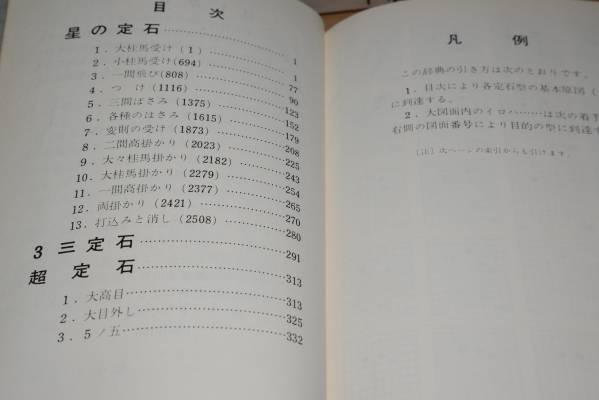 目次
星の定石……1
1．大桂馬受け（1）……1
2．小桂馬受け(694)……77
3．一間飛び(808)……90
4．つけ(1116)……123
5．三間ばさみ(1375)……152
6．各種のはさみ(1615)……179
7．変則の受け(1873)……208
8．二間高掛かり(2023)
9．大々桂馬掛かり(2182)……243
10．大桂馬掛かり(2279)……254
11．一間高掛かり(2377)……265
12．両掛かり(2421)……270
13．打込みと消し(2508)……280
3三定石……291
超定石……313
1．大高目……313
2．大目外し……325
3．5ノ五……332
凡例
この辞典の引き方は次のとおりです。
1．目次により各定石型の基本原図（
に到達する。
2．大図面内のイロハ……は次の着手
右側の図面番号により目的の型に到達す
〔注〕次ページの索引からも引けます。